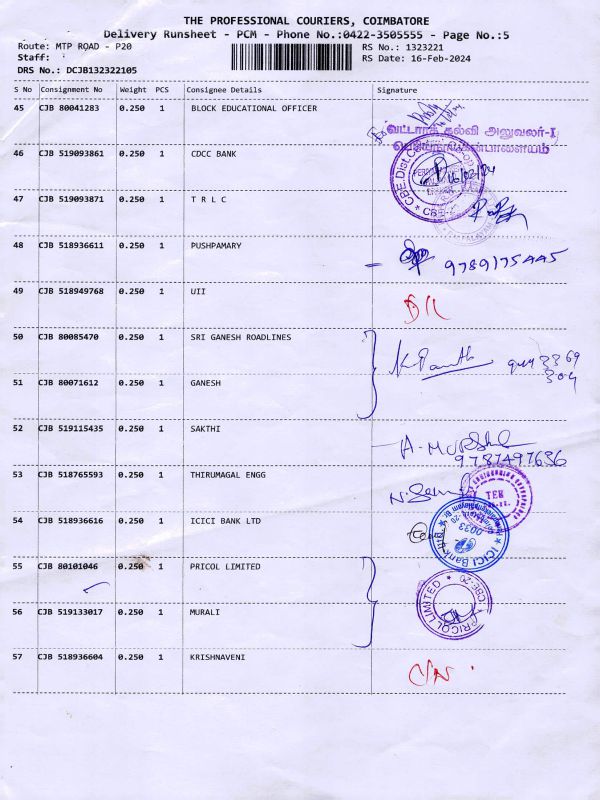 THE PROFESSIONAL COURIERS, COIMBATORE
Delivery Runsheet - PCM - Phone No.:0422-3505555 - Page No.:5
Route: MTP ROAD - P20 RS No.: 1323221
Staff: RS Date: 16-Feb-2024
DRS No.: DCJB132322105
S No Consignment No Weight PCS Consignee Details Signature
45 CJB 80041283 0.250 1 BLOCK EDUCATIONAL OFFICER
வட்டாரக் கல்வி அலுவலர்-I
46 CJB 519093861 0.250 1 CDCC BANK
16/02/24
47 CJB 519093871 0.250 1 T R L C
48 CJB 518936611 0.250 1 PUSHPAMARY
9789175445
49 CJB 518949768 0.250 1 UII
50 CJB 80085470 0.250 1 SRI GANESH ROADLINES
51 CJB 80071612 0.250 1 GANESH
52 CJB 519115435 0.250 1 SAKTHI
9787497636
53 CJB 518765593 0.250 1 THIRUMAGAL ENGG
TEK
54 CJB 518936616 0.250 1 ICICI BANK LTD
ICICI Bank Ltd.
0033
55 CJB 80101046 0.250 1 PRICOL LIMITED
PRICOL LIMITED CBE-20
56 CJB 519133017 0.250 1 MURALI
57 CJB 518936604 0.250 1 KRISHNAVENI